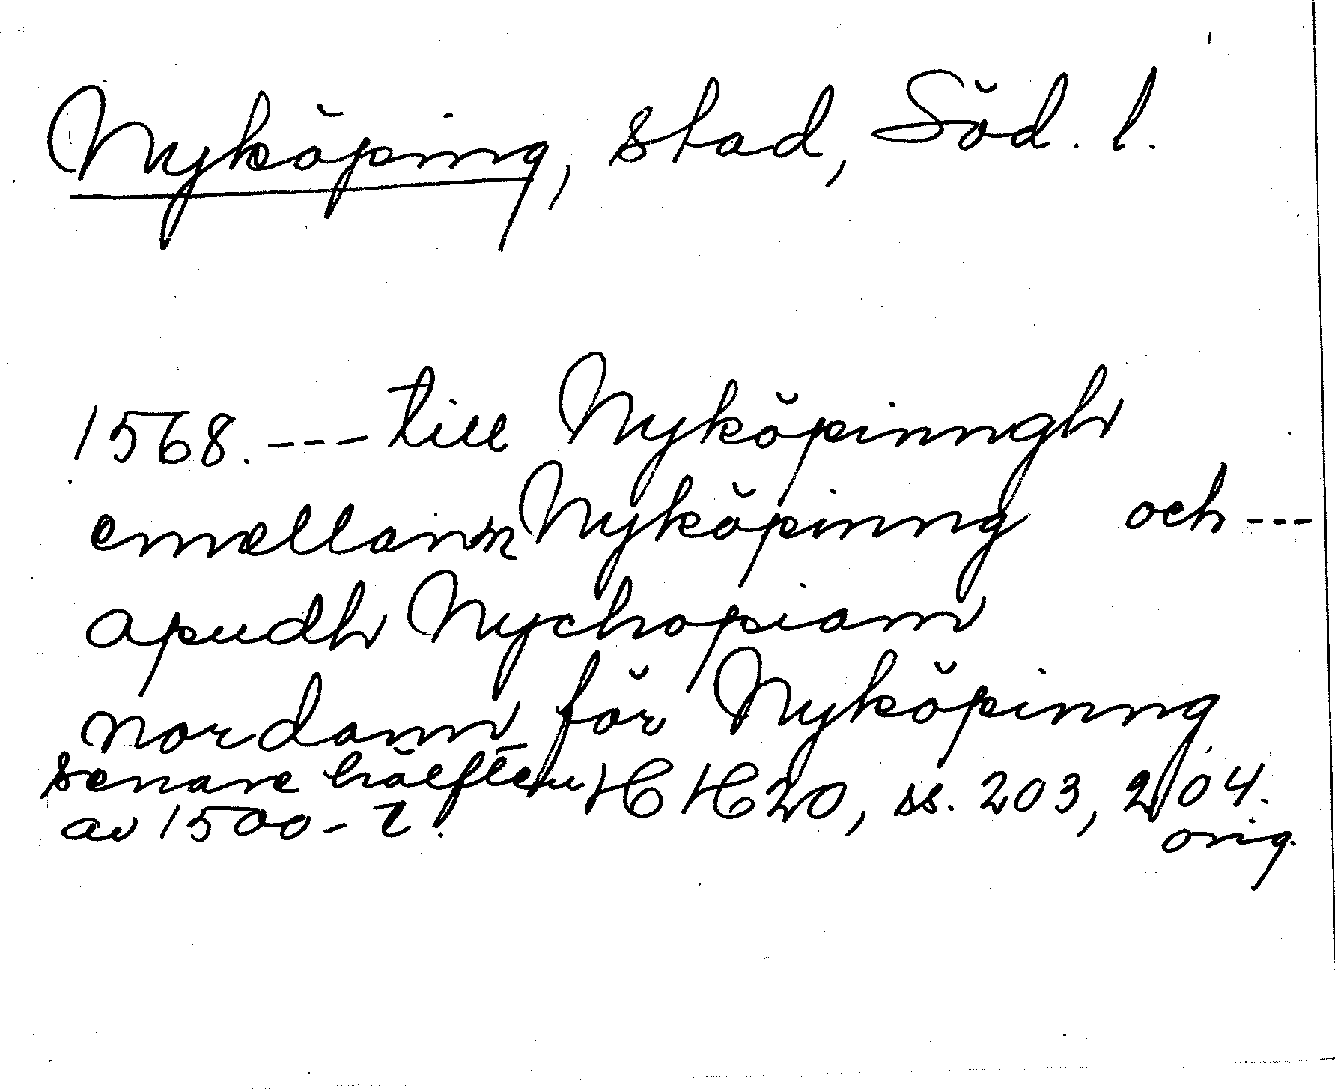 Nyköping, stad, Söd. l.
1568. --- till Nyköpinngh
emellann Nyköpinng och ---
apudh Nychopiam
nordann för Nyköpinng
senare hälften HH 20, ss. 203, 204.
av 1500-t. orig.